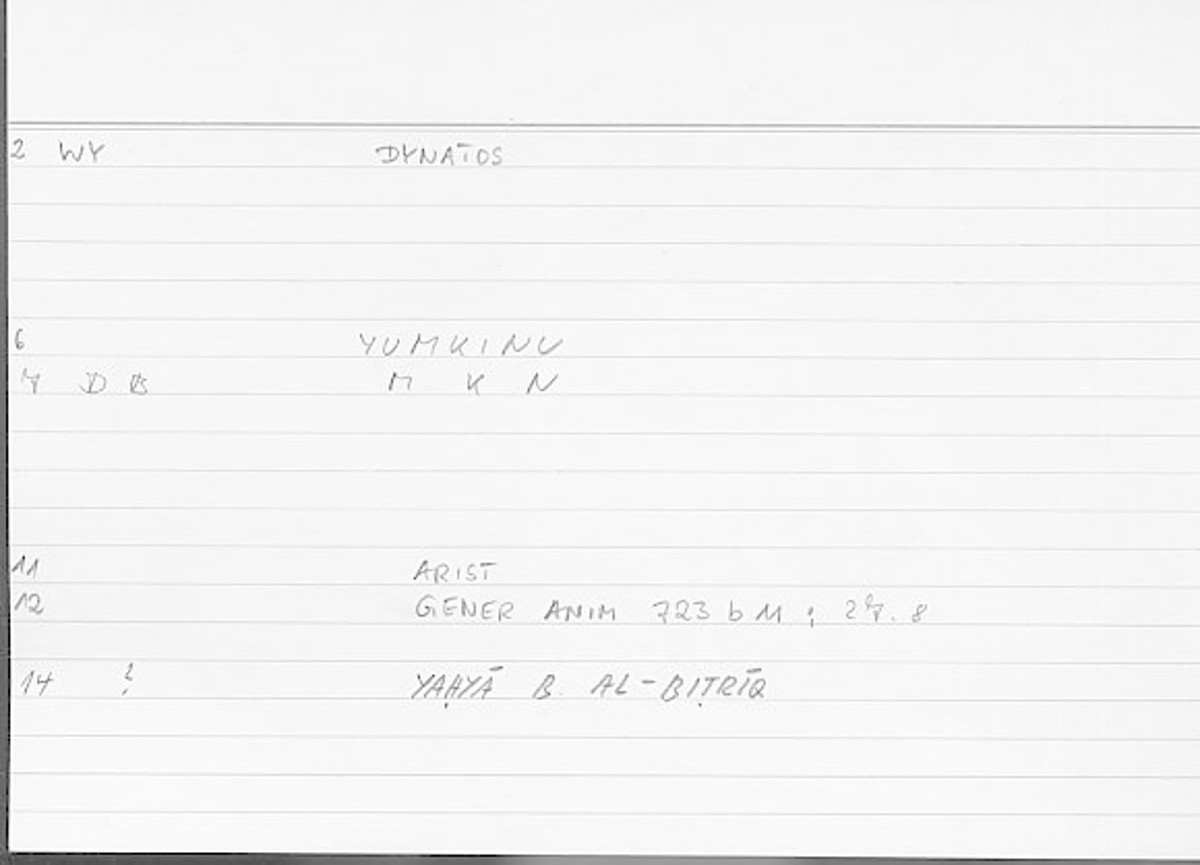 2 WY DYNATOS
6 YUMKINU
7 D B M K N
11 ARIST
12 GENER ANIM 723 b 11 ; 27.8
14 ? YAḤYĀ B. AL-BIṬRĪQ